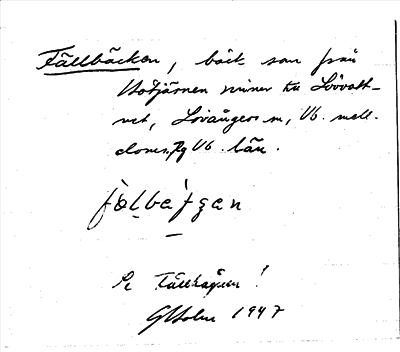 Fällbäcken, bäck som från
Hotjärnen rinner till Lövvatt-
net, Lövångers sn, Vb. mell.
domsag Vb. län.
Se Fällhögen!
GHolm 1947